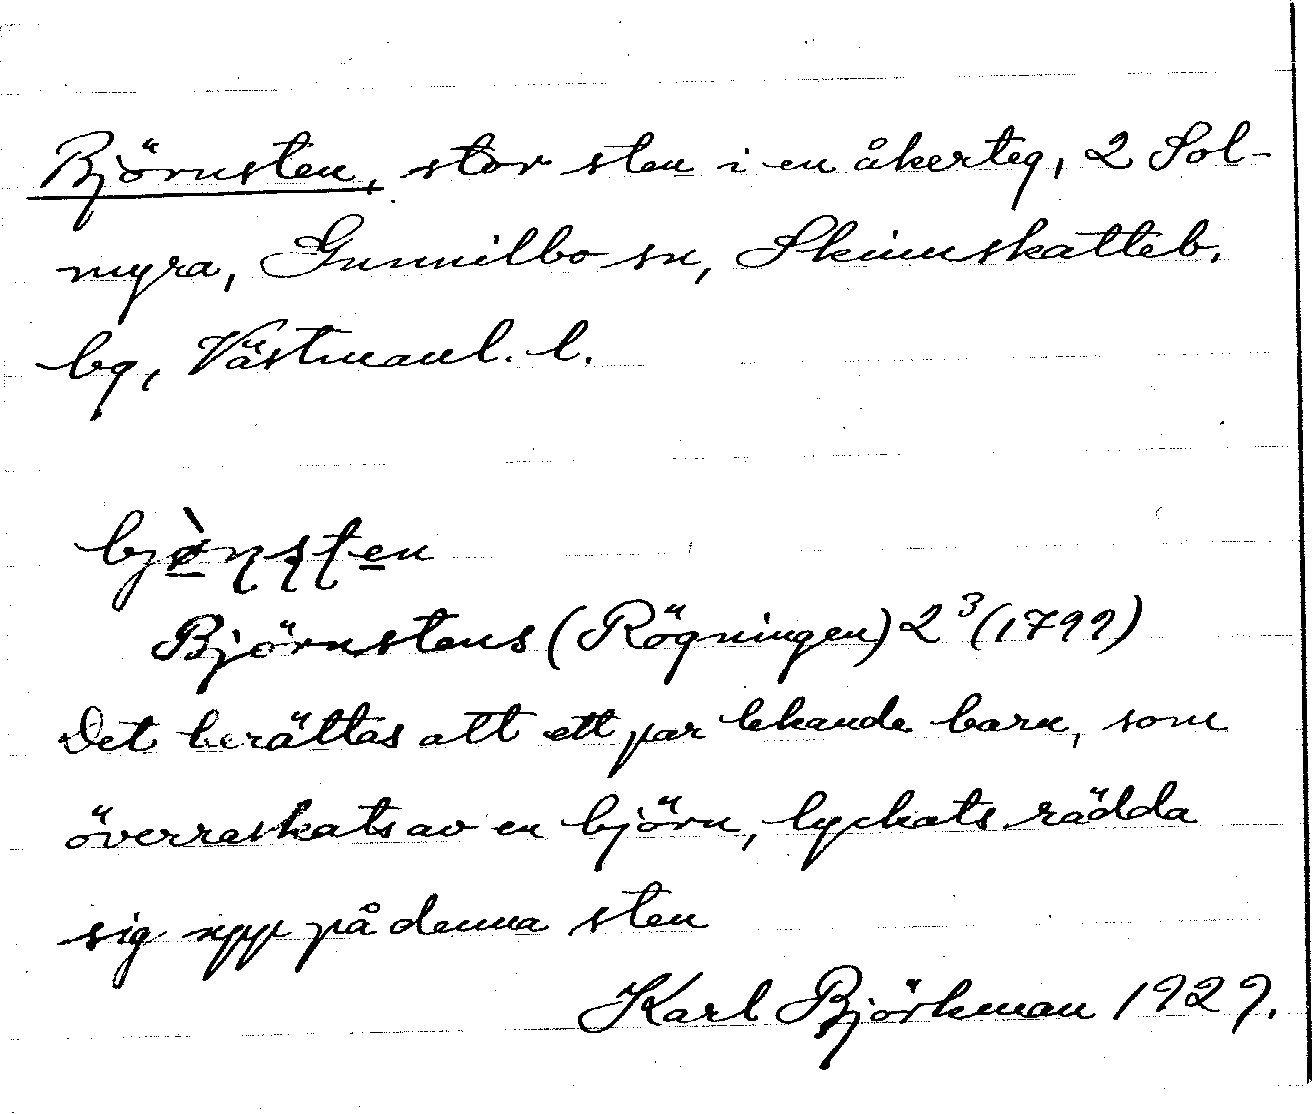 Björnsten, stor sten i en åkerteg, 2 Sol-
myra, Gunnilbo sn, Skinnskatteb.
bg, Västmanl. l.
bjø̀ɳʂʈen
Björnstens (Rögningen) 2³ (1799)
Det berättas att ett par lekande barn, som
överraskats av en björn, lyckats rädda
sig upp på denna sten
Karl Björkman 1929.